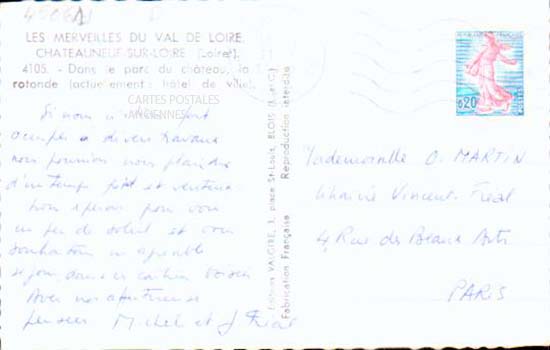 LES MERVEILLES DU VAL DE LOIRE
CHATEAUNEUF-SUR-LOIRE (Loiret).
4105. - Dans le parc du château, la
rotonde (actuellement : hôtel de ville).
CARTES POSTALES
ANCIENNES
0,20
Si nous
occupés à divers travaux
nous pourrions nous plaindre
d'un temps et venteux
Nous espérons pour vous
un peu de soleil et vous
souhaitons un agréable
séjour dans ce
Avec nos affectueuses
pensées Michel et J Fréal
Editions VALOIRE, 3, place St-Louis, BLOIS (L.-et-C.)
Fabrication Française Reproduction interdite
Mademoiselle O. MARTIN
Librairie Vincent-Fréal
4 Rue des Beaux Arts
PARIS